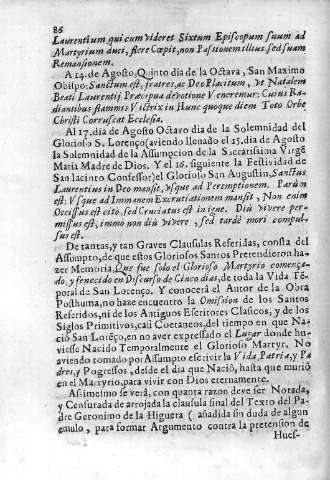 86
Laurentium, qui cum videret Sixtum Episcopum suum ad
Martyrium duci, flere Cœpit, non Passionem illius, sed suam
Remansionem.
A 14. de Agosto, Quinto dia de la Octava, San Maximo
Obispo: Sanctum est, fratres, ac Deo Placitum, ut Natalem
Beati Laurentij Præcipua devotione Veneremur: Cuius Ra-
diantibus flammis Victrix in Hunc quoque diem Toto Orbe
Christi Corruscat Ecclesia.
Al 17. dia de Agosto Octavo dia de la Solemnidad del
Glorioso S. Lorenço (aviendo llenado el 15. dia de Agosto
la Solemnidad de la Assumpcion de la Sacratissima Virgē
Maria Madre de Dios. Y el 16. siguiente la Festividad de
San Iacinto Confessor) el Glorioso San Augustin, Sanctus
Laurentius in Deo mansit, Vsque ad Peremptionem. Parùm
est: Vsque ad Immanem Exerutiationem mansit; Non enim
Occissus est cito, sed Cruciatus est in igne. Diù vivere per-
missus est, immò non diù vivere, sed tardè mori compul-
sus est.
De tantas, y tan Graves Clausulas Referidas, consta del
Assumpto, de que estos Gloriosos Santos Pretendieron ha-
zer Memoria, Que fue solo el Glorioso Martyrio començā-
do, y fenecido en Discurso de Cinco dias, de toda la Vida Tē-
poral de San Lorenço. Y conocerá el Autor de la Obra
Posthuma, no haze encuentro la Omission de los Santos
Referidos, ni de los Antiguos Escritores Clasicos, y de los
Siglos Primitivos, casi Coetaneos, del tiempo en que Na-
ciò San Lorēço, en no aver expressado el Lugar donde hu-
viesse Nacido Temporalmente el Glorioso Martyr. No
aviendo tomado por Assumpto escrivir la Vida, Patria, y Pa-
dres, y Progressos, desde el dia que Naciò, hasta que muriò
en el Martyrio, para vivir con Dios eternamente.
Assimesmo se verá, con quanta razon deve ser Notada,
y Censurada de arrojada la clausula final del Texto del Pa-
dre Geronimo de la Higuera (añadida sin duda de algun
emulo, para formar Argumento contra la pretension de
Hues-